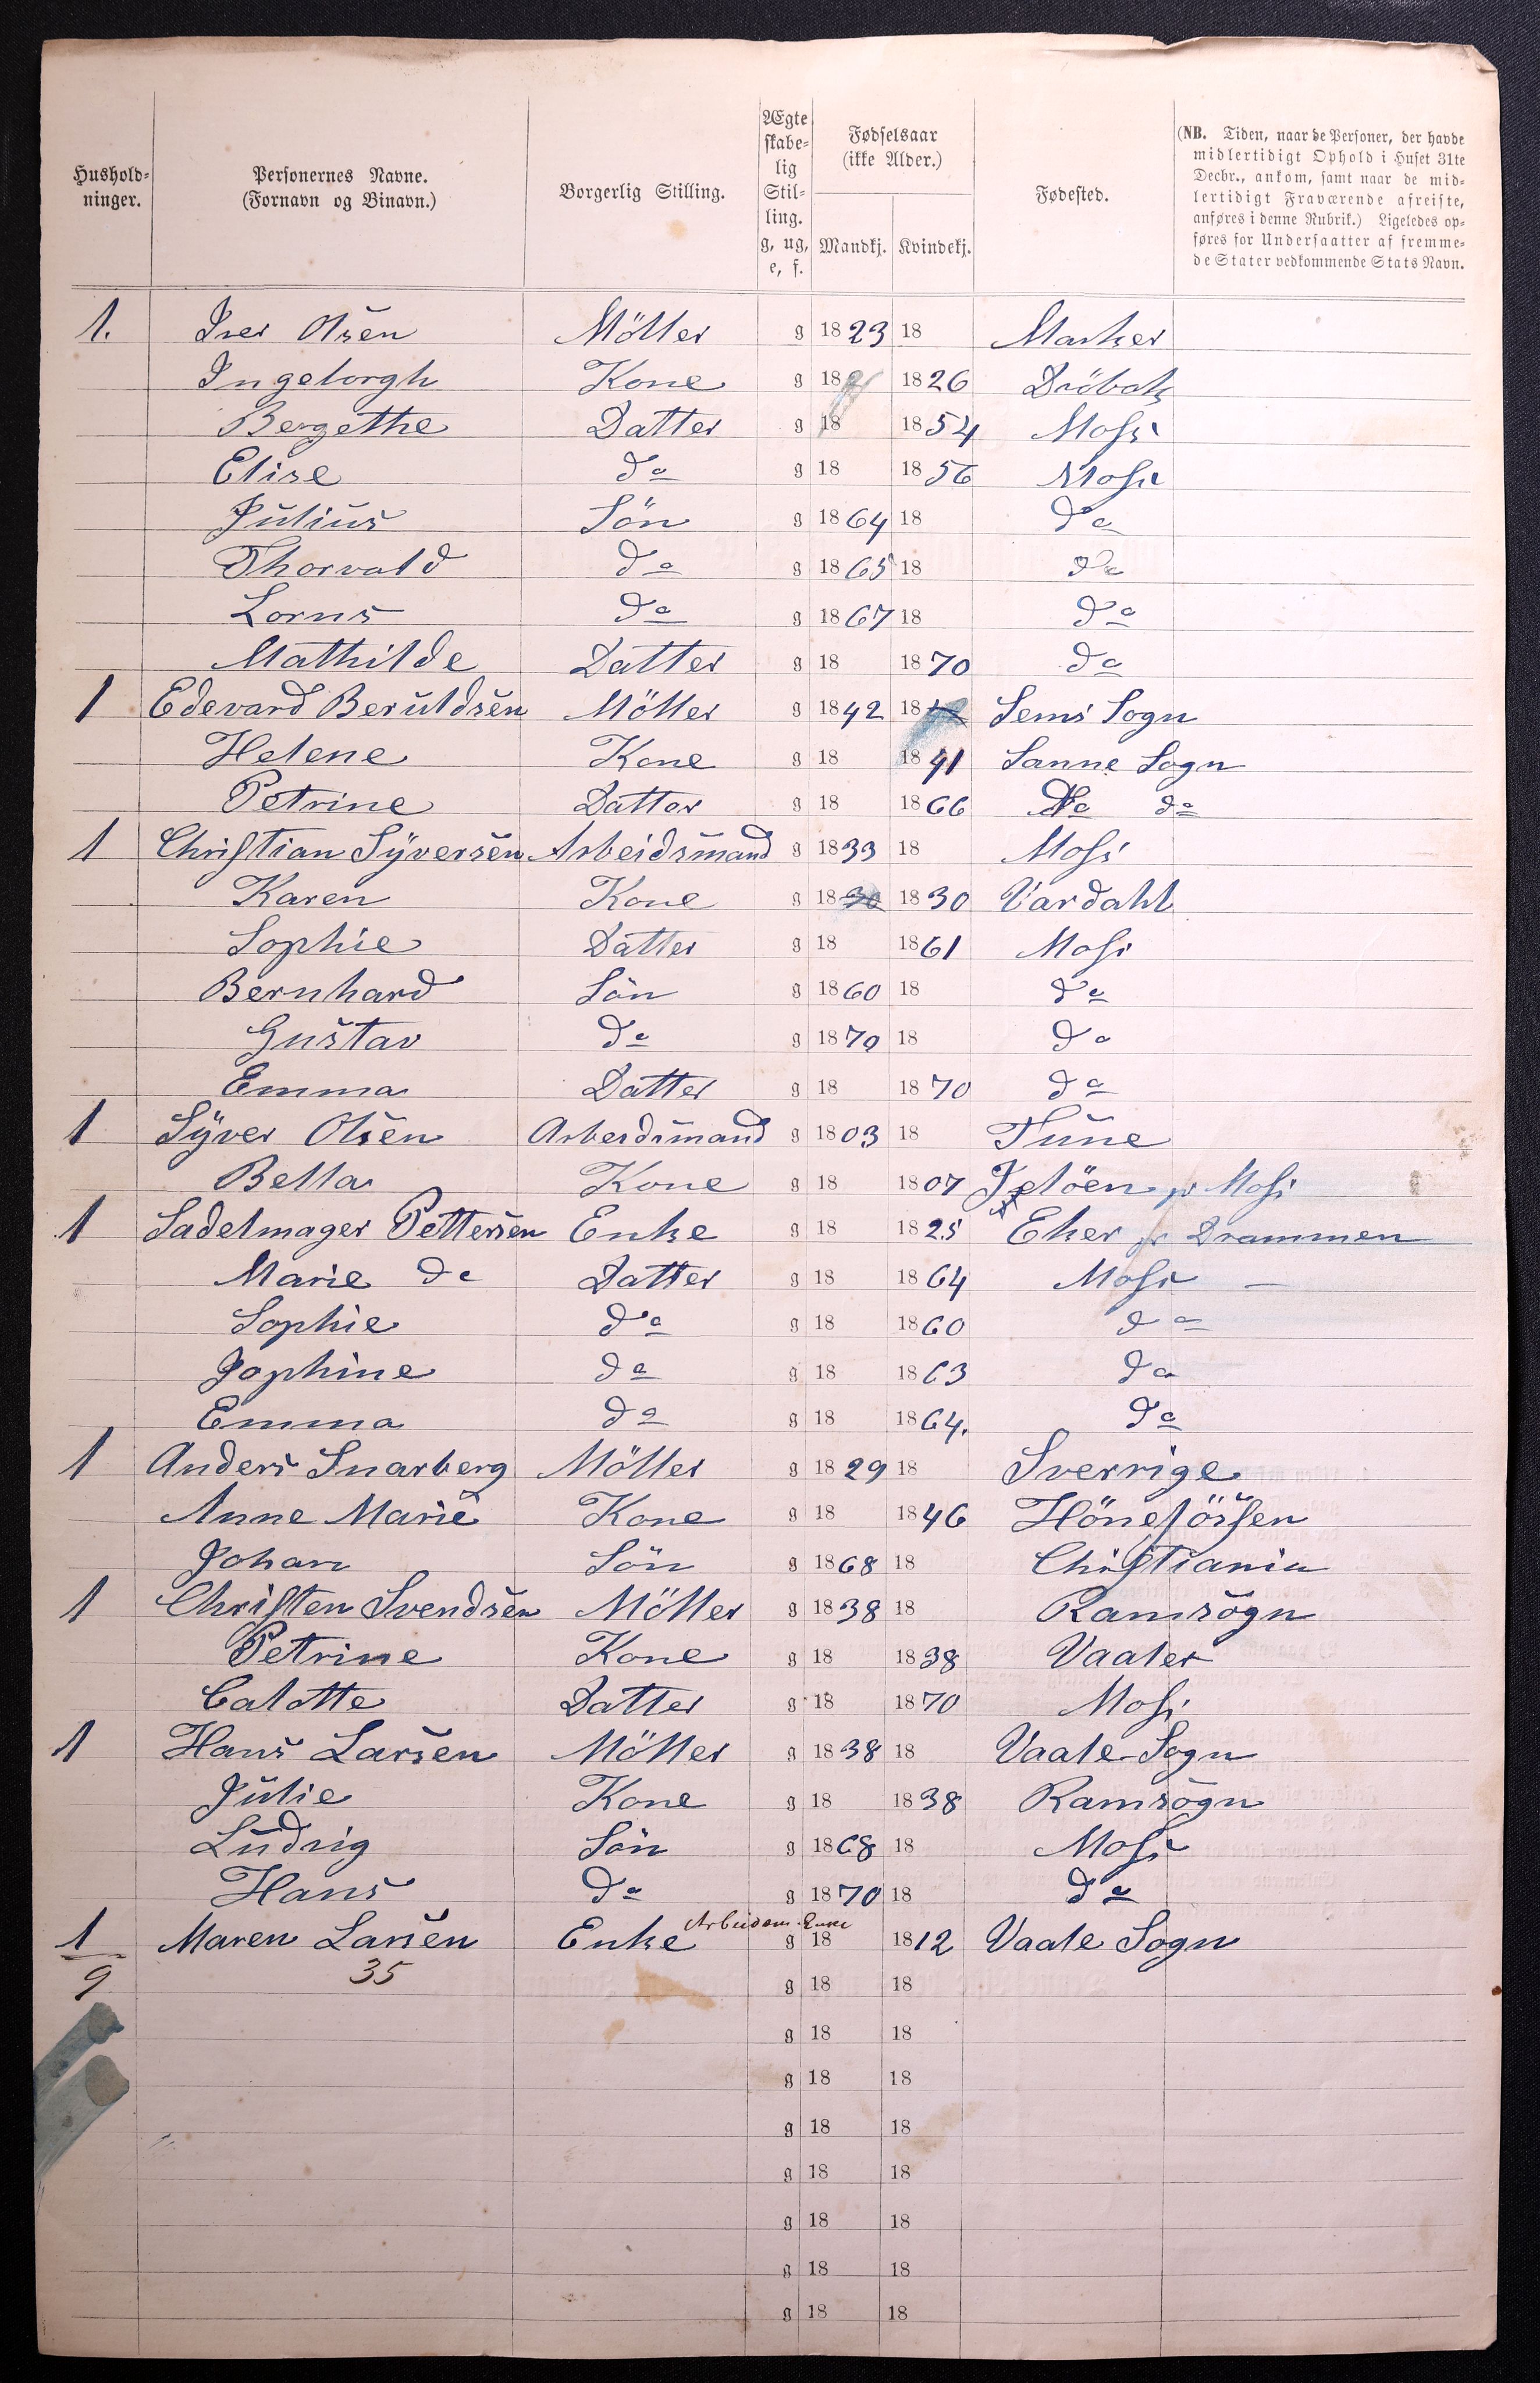 Hushold-ninger. Personernes Navne. (Fornavn og Binavn.) Borgerlig Stilling. Ægteskabe-lig Stil-ling. g, ug, e, f. Fødselsaar (ikke Alder.) Mandkj. Kvindekj. Fødested. (NB. Tiden, naar de Personer, der havde midlertidigt Ophold i Huset 31te Decbr., ankom, samt naar de mid-lertidigt Fraværende afreiste, anføres i denne Rubrik.) Ligeledes op-føres for Undersaatter af fremme-de Stater vedkommende Stats Navn.
1. Iver Olsen Möller g 1823 18 Marker
Ingeborgh Kone g 18 1826 Dröbak
Bergethe Datter g 18 1854 Moss
Elise do g 18 1856 Moss
Julius Sön g 1864 18 do
Thorvald do g 1865 18 do
Lorns do g 1867 18 do
Mathilde Datter g 18 1870 do
1 Edevard Beruldsen Möller g 1842 18 Sems Sogn
Helene Kone g 18 1841 Sanne Sogn
Petrine Datter g 18 1866 do do
1 Christian Syversen Arbeidsmand g 1833 18 Moss
Karen Kone g 1830 1830 Vardahl
Sophie Datter g 18 1861 Moss
Bernhard Sön g 1860 18 do
Gustav do g 1870 18 do
Emma Datter g 18 1870 do
1 Syver Olsen Arbeidsmand g 1803 18 Tune
Bella Kone g 18 1807 Jelöen pr Moss
1 Sadelmager Pettersen Enke g 18 1825 Eker pr Drammen
Marie do Datter g 18 1864 Moss —
Sophie do g 18 1860 do
Jophine do g 18 1863 do
Emma do g 18 1864. do
1 Anders Snarberg Möller g 1829 18 Sverrige
Anne Marie Kone g 18 1846 Hönefössen
Johan Sön g 1868 18 Christiania
1 Christen Svendsen Möller g 1838 18 Ramsogn
Petrine Kone g 18 1838 Vaaler
Calotte Datter g 18 1870 Moss
1 Hans Larsen Möller g 1838 18 Vaale Sogn
Julie Kone g 18 1838 Ramsogn
Ludvig Sön g 1868 18 Moss
Hans do g 1870 18 do
Arbeidsm. Enke
1 Maren Larsen Enke g 18 1812 Vaale Sogn
9 35 g 18 18
g 18 18
g 18 18
g 18 18
g 18 18
g 18 18
g 18 18
g 18 18